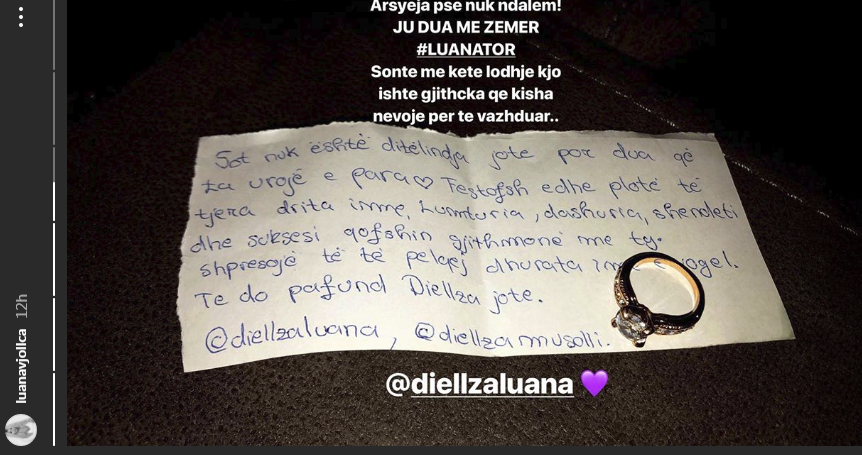 Arsyeja pse nuk ndalem!
JU DUA ME ZEMER
#LUANATOR
Sonte me kete lodhje kjo
ishte gjithcka qe kisha
nevoje per te vazhduar..
Sot nuk është ditëlindja jote por dua që
ta urojë e para♡ Festofsh edhe plotë të
tjera drita ime, Lumturia, dashuria, shendeti
dhe suksesi qofshin gjithmonë me ty.
shpresojë të të pelqej dhurata ime e vogel.
Te do pafund Diellza jote.
@diellzaluana, @diellzamusolli.
@diellzaluana 💜
luanavjollca 12h